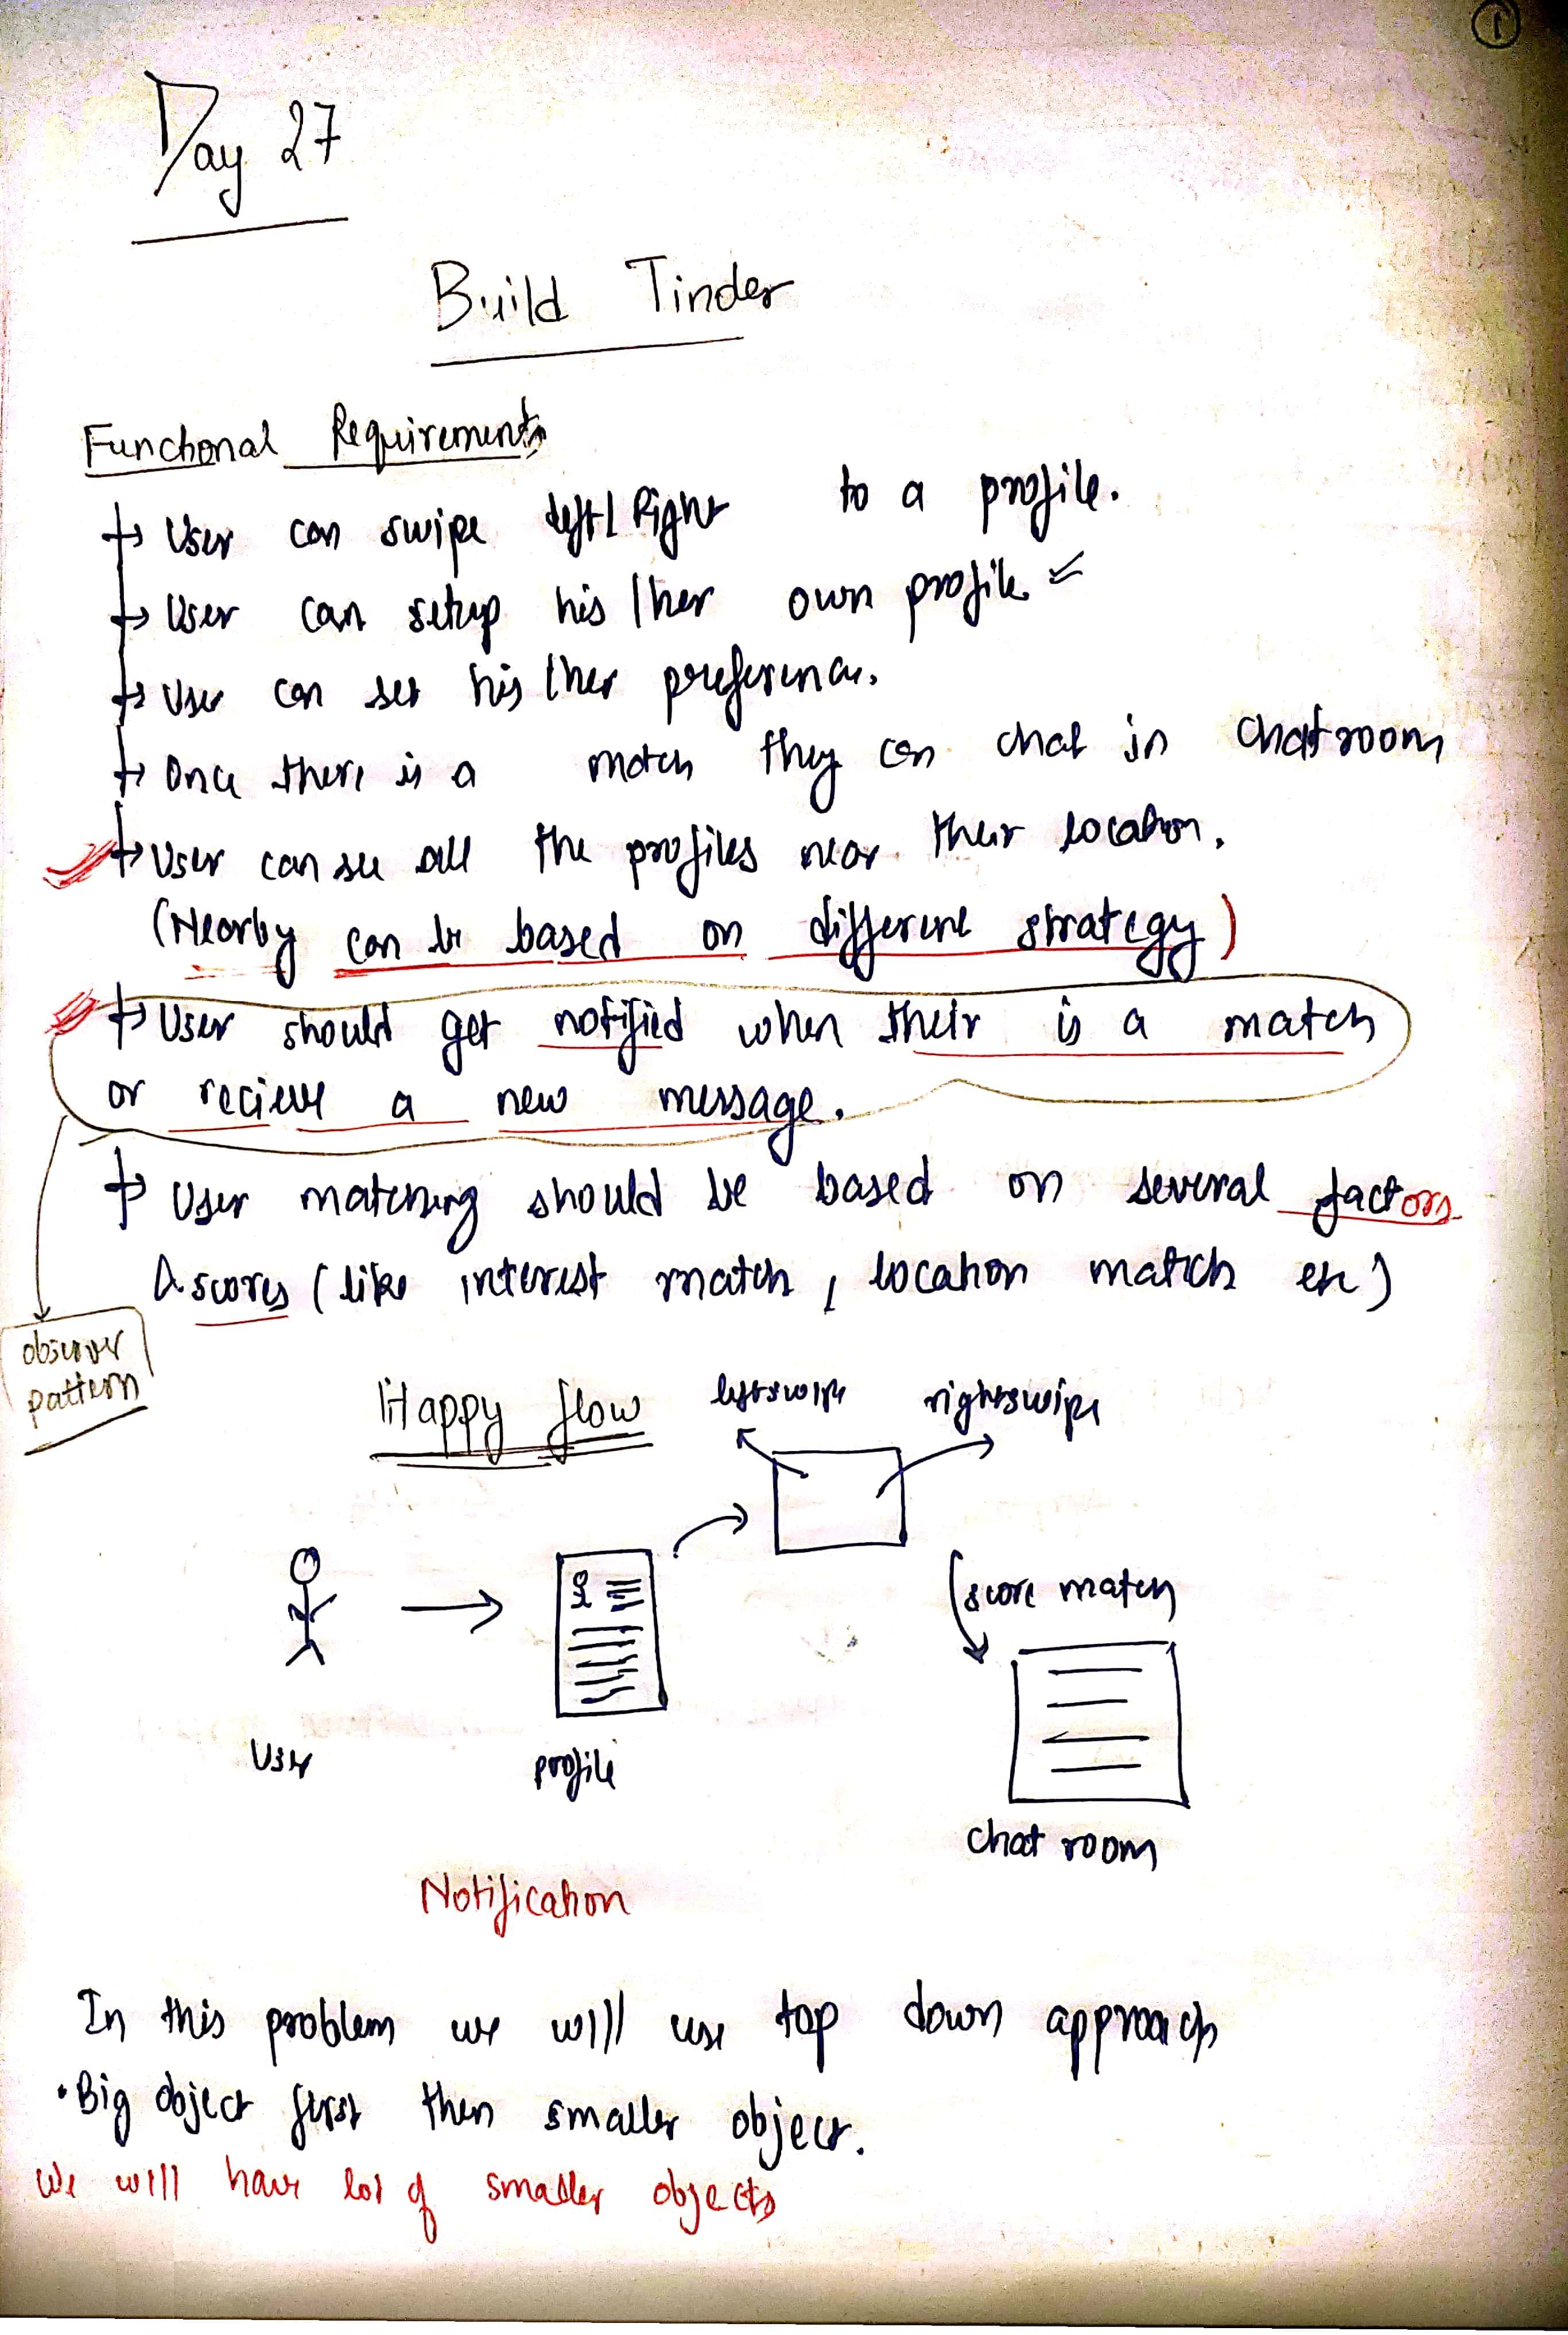 1
Day 27
Build Tinder
Functional Requirements
User can swipe left/Right to a profile.
User can setup his/her own profile
User can set his/her preference.
Once there is a match they can chat in chatroom
User can see all the profiles near their location.
(Nearby can be based on different strategy)
User should get notified when their is a match
or recieve a new message.
User matching should be based on several factors
& scores (like interest match, location match etc)
observer
pattern
Happy flow
leftswipe
rightswipe
score match
User
profile
chat room
Notification
In this problem we will use top down approach
• Big object first then smaller object.
We will have lot of smaller objects